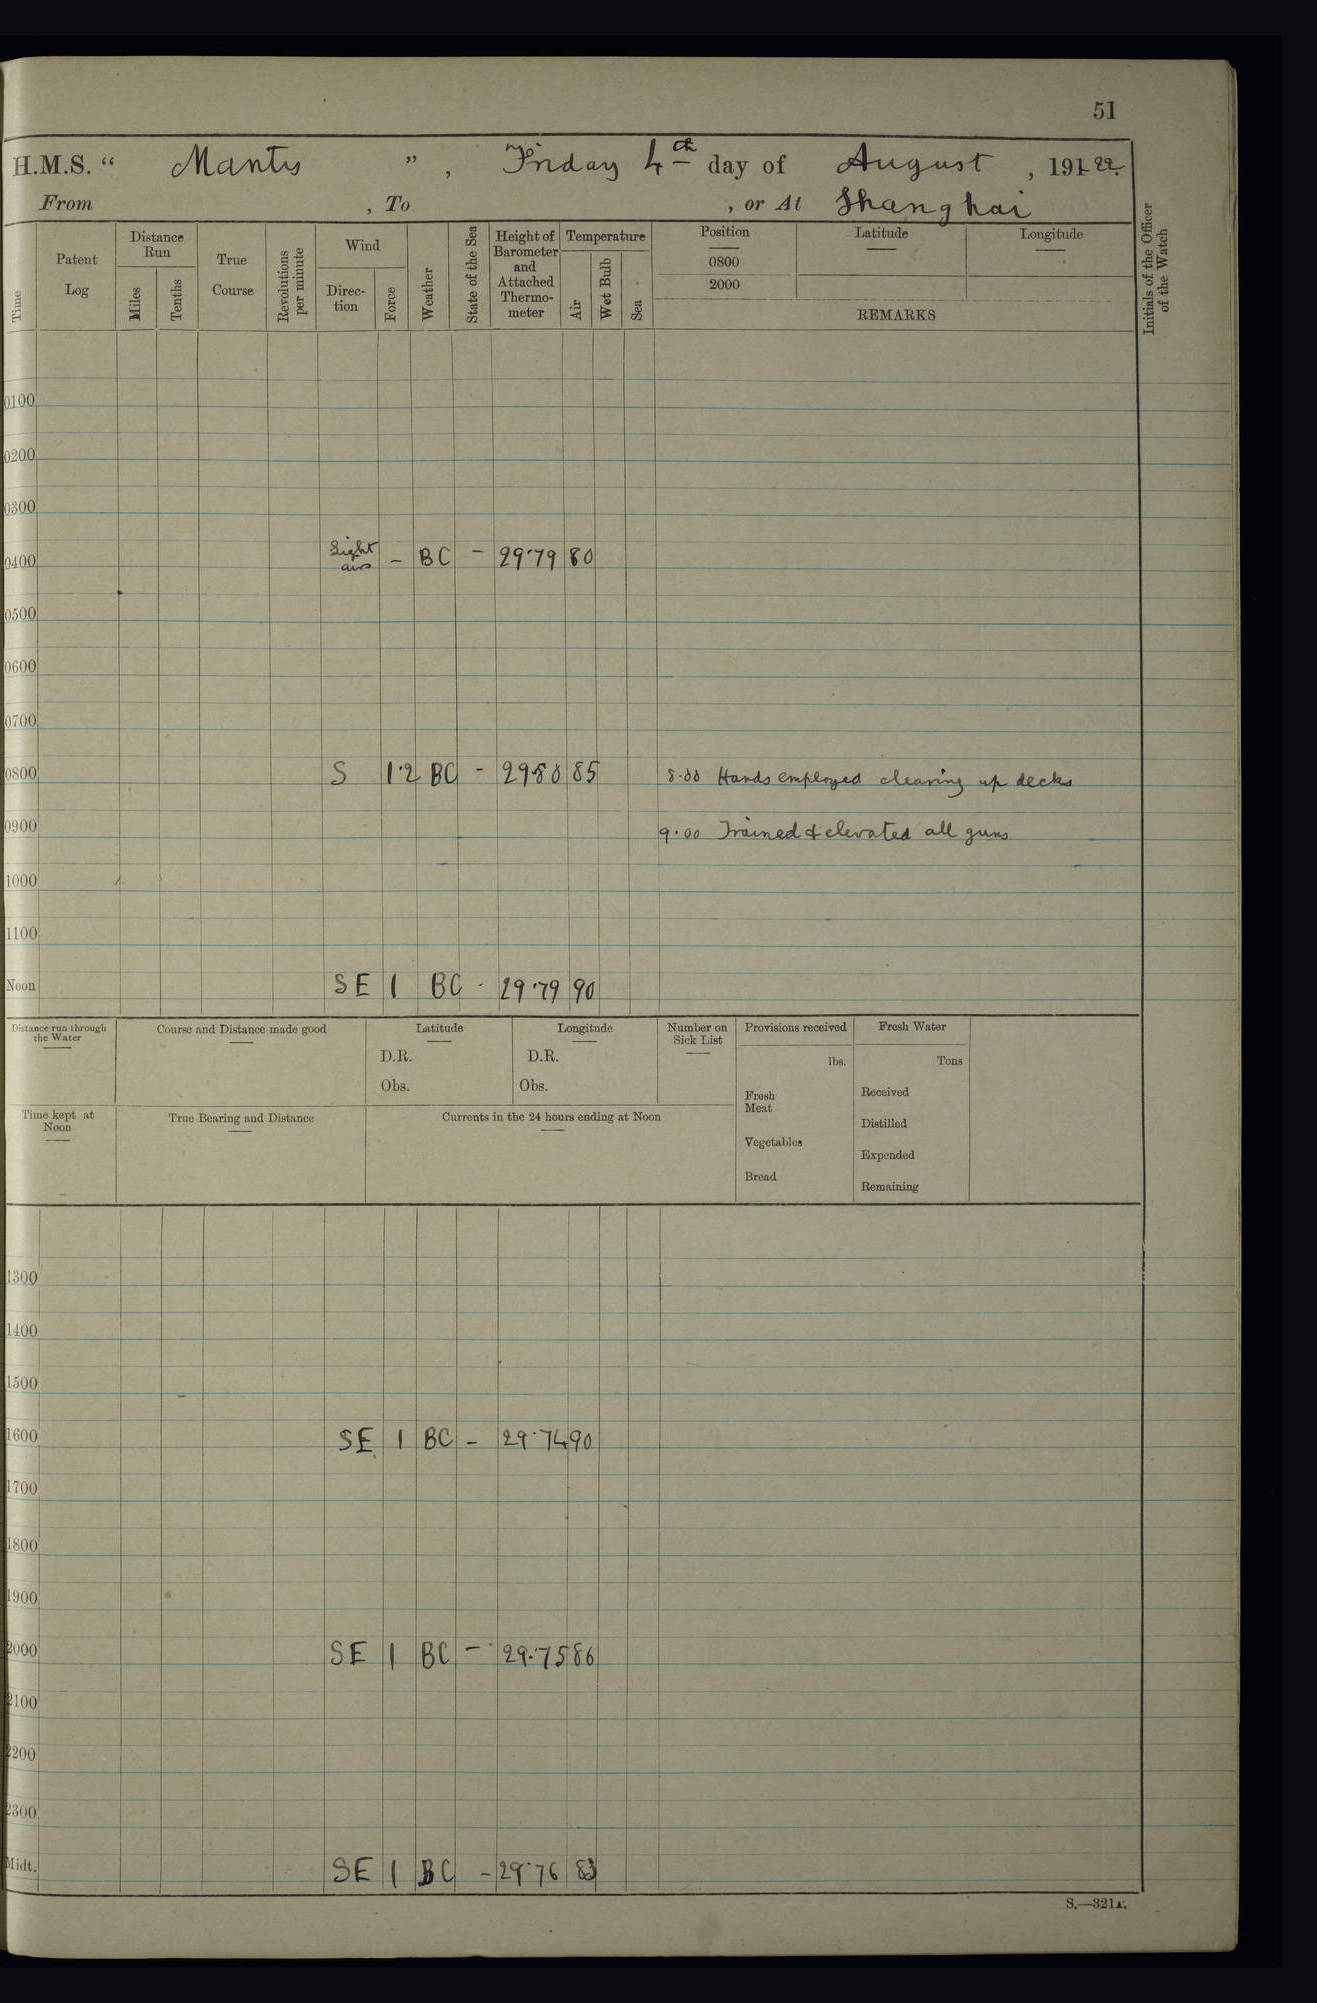 51
H.M.S. “ Mantis ”, Friday 4th day of August, 191 22.
From , To , or At Shanghai
Time
Patent Log
Distance Run
Miles
Tenths
True Course
Revolutions per minute
Wind
Direc-tion
Force
Weather
State of the Sea
Height of Barometer and Attached Thermo-meter
Temperature
Air
Wet Bulb
Sea
Position
0800
2000
Latitude
Longitude
REMARKS
Initials of the Officer of the Watch
0100
0200
0300
0400 Light airs – BC – 29.79 80
0500
0600
0700
0800 S 1.2 BC - 29.80 85 8.00 Hands employed clearing up decks
0900 9.00 Trained & elevated all guns
1000
1100
Noon SE 1 BC - 29.79 90
Distance run through the Water
Course and Distance made good
Latitude
D.R.
Obs.
Longitude
D.R.
Obs.
Number on Sick List
Provisions received
lbs.
Fresh Meat
Vegetables
Bread
Fresh Water
Tons
Received
Distilled
Expended
Remaining
Time kept at Noon
True Bearing and Distance
Currents in the 24 hours ending at Noon
1300
1400
1500
1600 SE 1 BC – 29.74 90
1700
1800
1900
2000 SE 1 BC – 29.75 86
2100
2200
2300
Midt. SE 1 BC – 29.76 83
S.—321A.